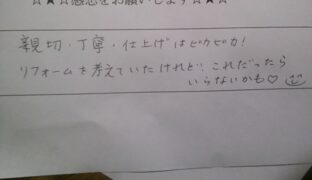 ☆★☆感想をお願いします☆★☆
親切・丁寧・仕上げはピカピカ!
リフォームを考えていたけれど!これだったら
いらないかも♡